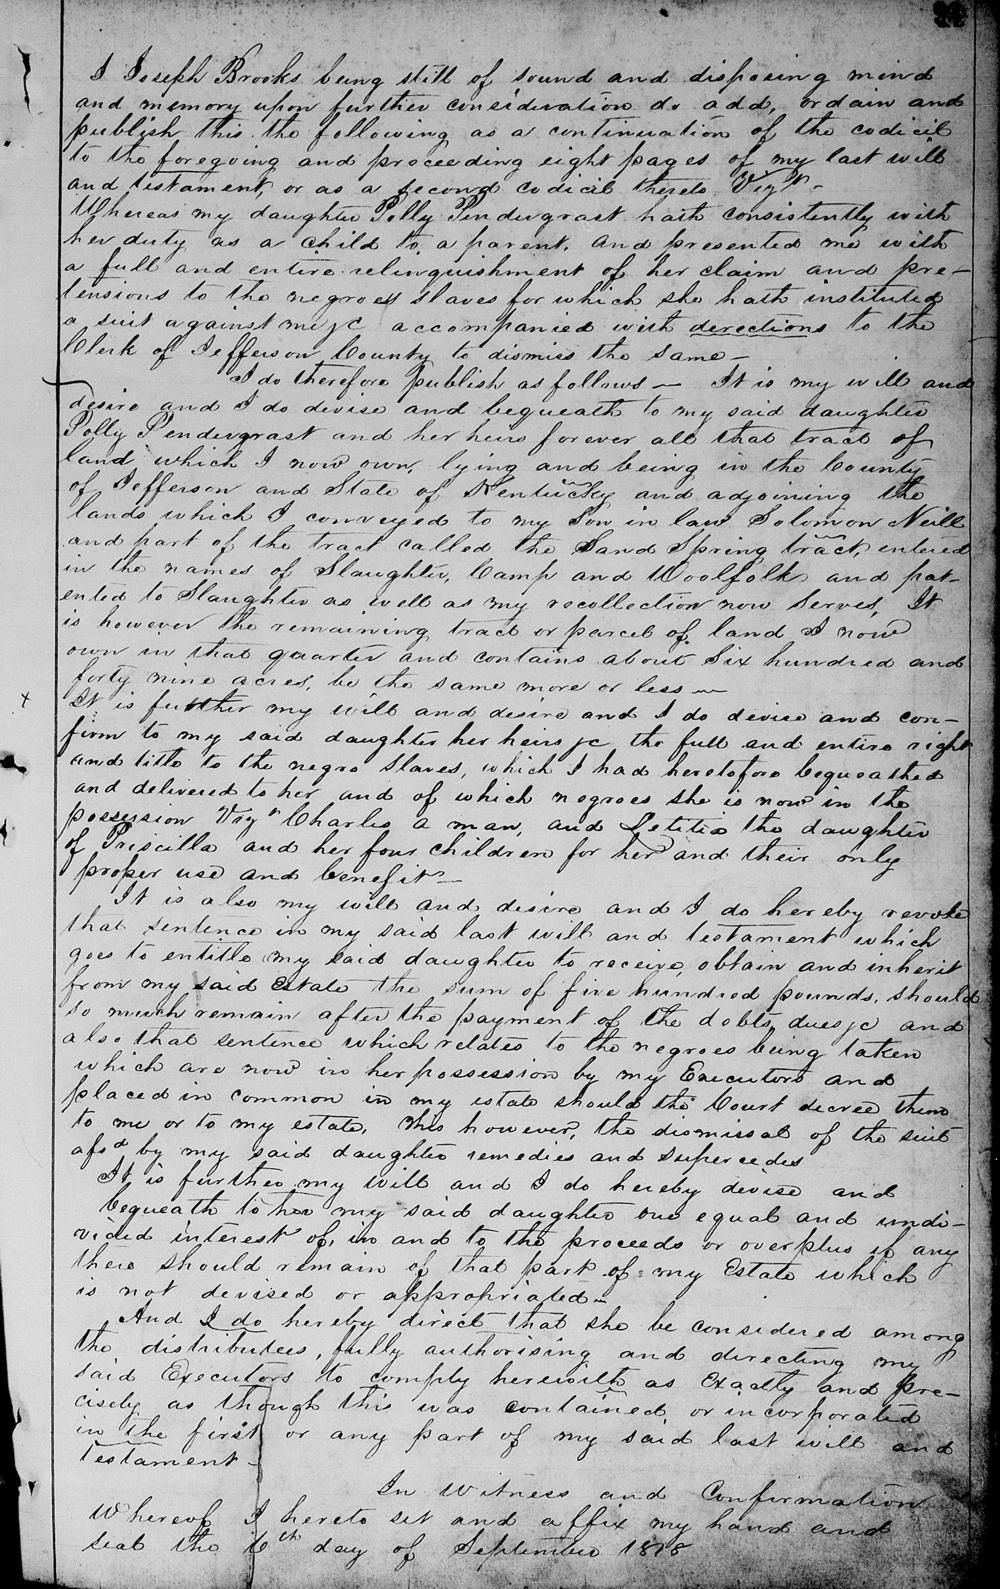 I Joseph Brooks being still of sound and disposing mind
and memory upon further consideration do add, ordain and
publish this the following as a continuation of the codicil
to the foregoing and proceeding eight pages of my last will
and testament, or as a second codicil thereto Vizt.
Whereas my daughter Polly Pendergrast hath consistently with
her duty as a child to a parent, and presented me with
a full and entire relinquishment of her claim and pre-
tensions to the negroes slaves for which she hath instituted
a suit against me &c accompanied with derections to the
Clerk of Jefferson County to dismiss the same -
I do therefore publish as follows - It is my will and
desire and I do devise and bequeath to my said daughter
Polly Pendergrast and her heirs forever all that tract of
land which I now own, lying and being in the County
of Jefferson and State of Kentucky and adjoining the
lands which I conveyed to my Son in law Solomon Neill
and part of the tract called the Sand Spring tract, entered
in the names of Slaughter, Camp and Woolfolk and pat-
ented to Slaughter as well as my recollection now serves, It
is however the remaining tract or parcel of land I now
own in that quarter and contains about Six hundred and
forty nine acres, be the same more or less -
It is further my will and desire and I do devise and con-
firm to my said daughter her heirs &c the full and entire right
and title to the negro slaves, which I had heretofore bequeathed
and delivered to her and of which negroes she is now in the
possession Vizt Charles a man, and Letitia the daughter
of Priscilla and her four children for her and their only
proper use and benefit -
It is also my will and desire and I do hereby revoke
that sentence in my said last will and testament which
goes to entitle my said daughter to receive, obtain and inherit
from my said Estate the sum of five hundred pounds, should
so much remain after the payment of the debts, dues &c and
also that sentence which relates to the negroes being taken
which are now in her possession by my Executors and
placed in common in my estate should the Court decree them
to me or to my estate, This however, the dismissal of the suit
afsd by my said daughter remedies and supercedes
It is further my will and I do hereby devise and
bequeath to her my said daughter one equal and undi-
vided interest of, in and to the proceeds or overplus if any
there should remain of that part of my Estate which
is not devised or appropriated -
And I do hereby direct that she be considered among
the distributees, fully authorising and directing my
said Executors to comply herewith as exactly and pre-
cisely as though this was contained, or incorporated
in the first or any part of my said last will and
testament -
In Witness and Confirmation
Whereof I hereto set and affix my hand and
seal the 6th day of September 1818